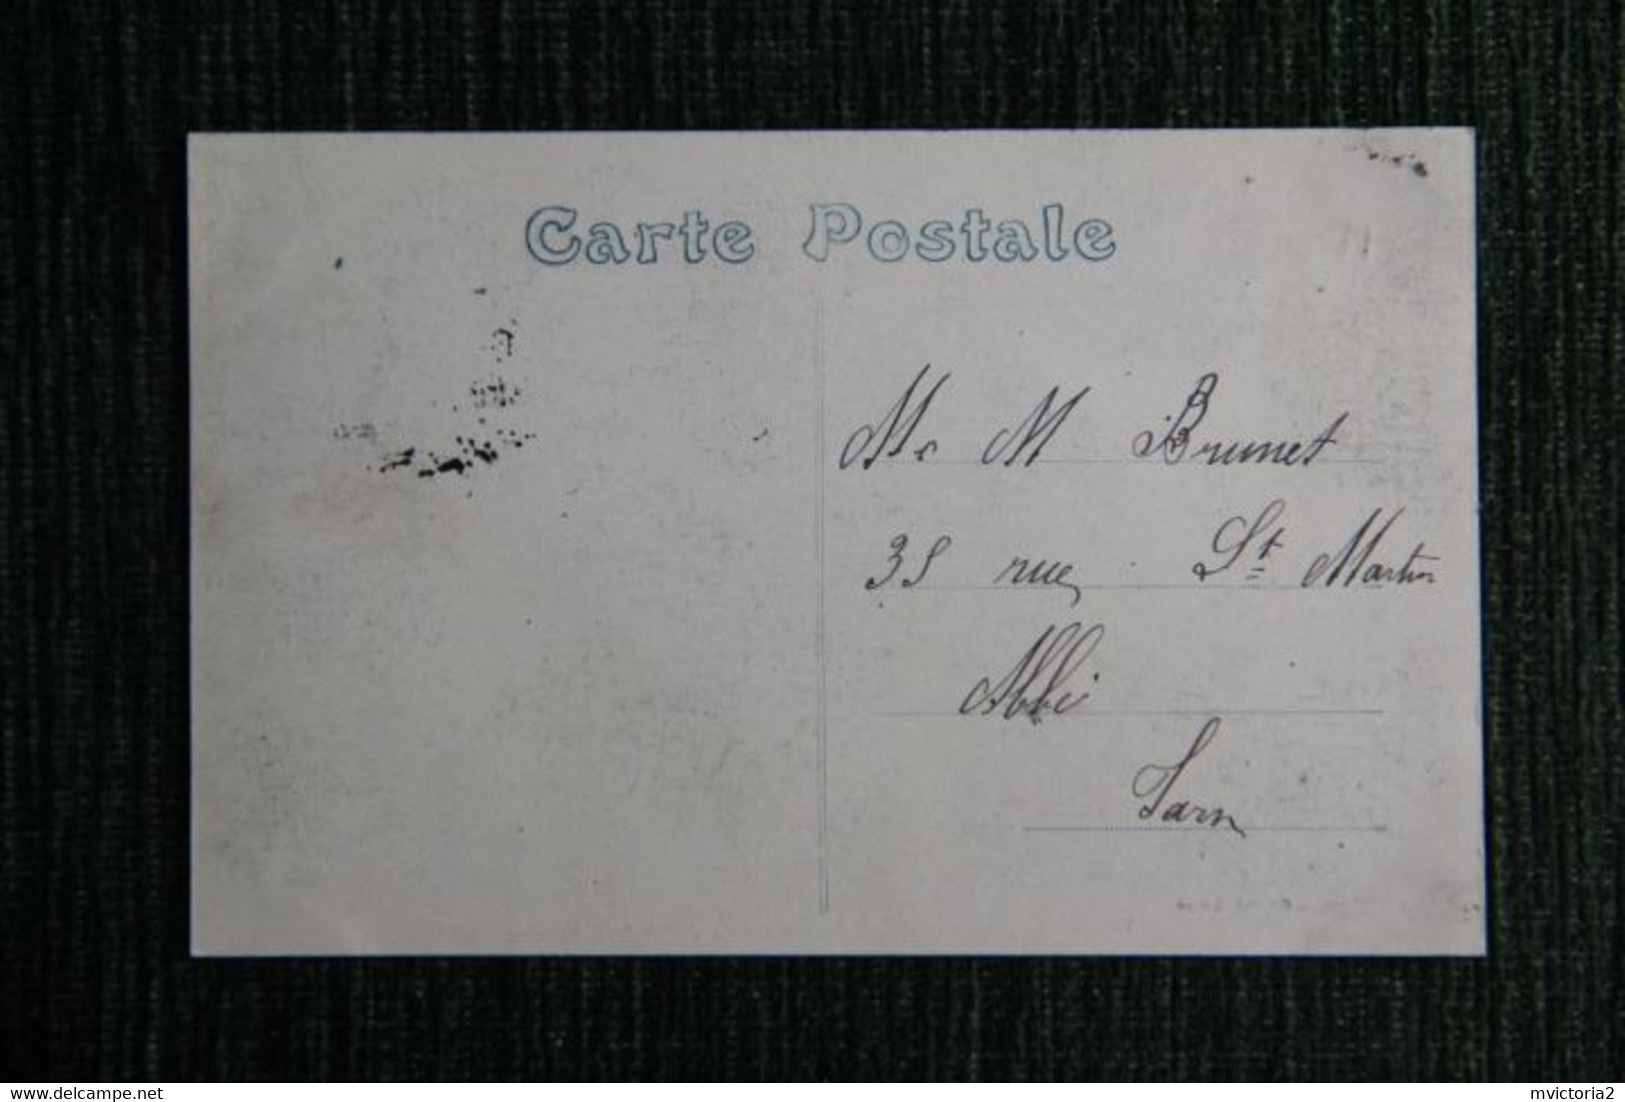 Carte Postale
Mr M Brunet
35 rue St Martin
Albi
Tarn
www.delcampe.net
mvictoria2